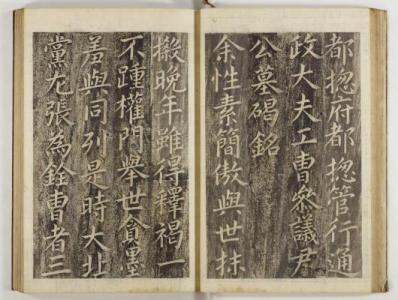 都惣府都惣管行通
政大夫工曹參議尹
公墓碣銘
余性素簡傲與世抹
摋晚年雖得釋褐一
不踵權門舉世貪墨
羞與同列是時大北
黨尤張為銓曹者三